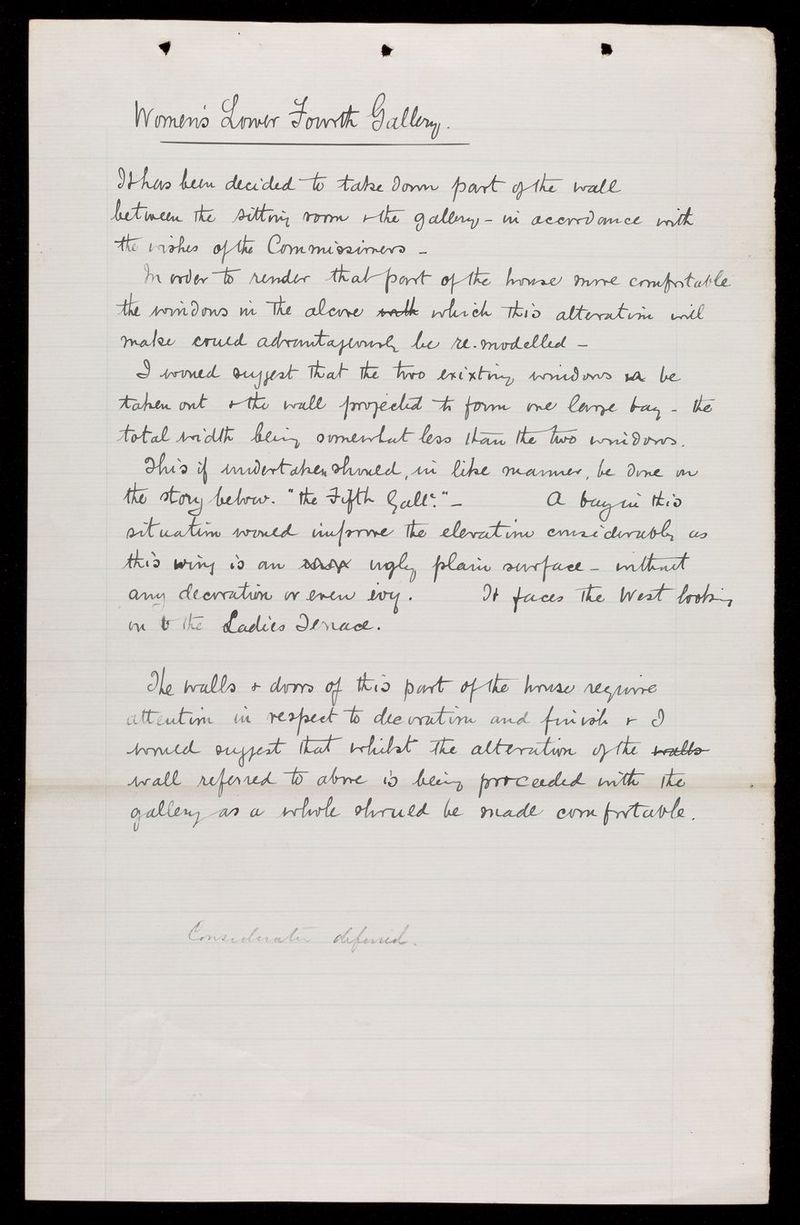 Women's Lower Fourth Gallery.
It has been decided to take down part of the wall
between the sitting room & the gallery - in accordance with
the wishes of the Commissioners -
In order to render that part of the house more comfortable
the windows in the alcove with which this alteration will
make could advantageously be re-modelled -
I would suggest that the two existing windows be
taken out & the wall projected to form one large bay - the
total width being somewhat less than the two windows.
This if undertaken should, in like manner, be done on
the story below. "the Fifth Gall:y" - A bay in this
situation would improve the elevation considerably as
this wing is an ugly plain surface - without
any decoration or even ivy. It faces the West looking
on to the Ladies Terrace.
The walls & doors of this part of the house require
attention in respect to decoration and finish & I
would suggest that whilst the alteration of the walls
wall referred to above is being proceeded with the
gallery as a whole should be made comfortable.
Consideration deferred.